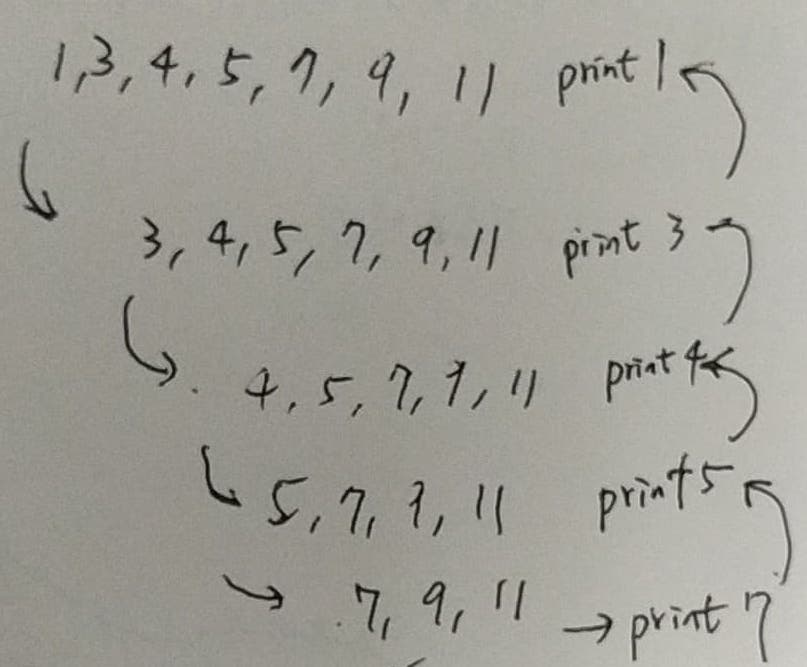 1,3, 4, 5, 7, 9, 11 print 1
3, 4, 5, 7, 9, 11 print 3
4, 5, 7, 9, 11 print 4
5, 7, 9, 11 print 5
7, 9, 11 → print 7